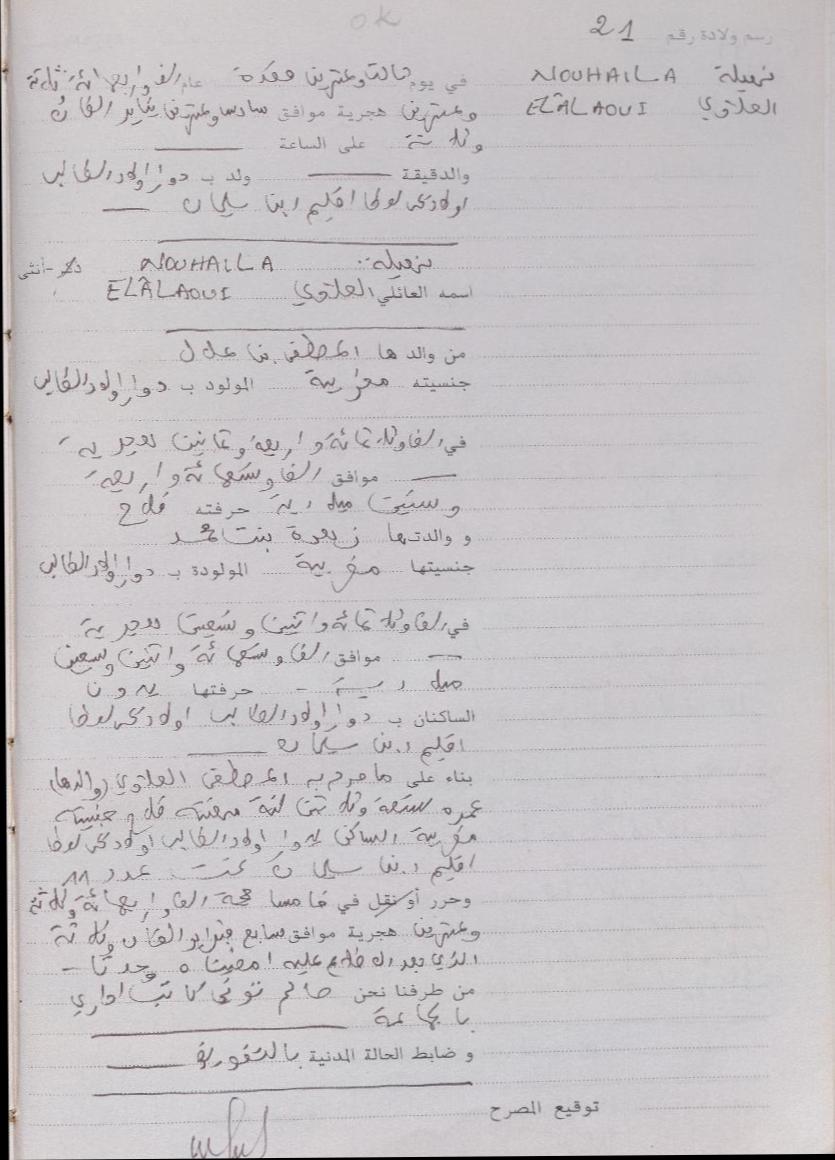 OK
رسم ولادة رقم 21
نهيلة NOUHAILA
العلوي ELÂLAOUI
في يوم ثالث وعشرين قعدة عام الف واربعمائة وثلاثة
وعشرين هجرية موافق سادس وعشرين يناير الفان
وثلاثة على الساعة
والدقيقة ولد ب دوار اولاد الطالب
اولاد يحيى لوطا اقليم ابن سليمان
نهيلة NOUHAILA ذكر - أنثى
اسمه العائلي العلوي ELÂLAOUI
من والدها المصطفى بن علال
جنسيته مغربية المولود ب دوار اولاد الطالب
في الف وثلاثمائة واربعة وثمانين هجرية
موافق الف وتسعمائة واربعة
وستين ميلادية حرفته فلاح
و والدتها زهرة بنت محمد
جنسيتها مغربية المولودة ب دوار اولاد الطالب
في الف وثلاثمائة واثنين وتسعين هجرية
موافق الف وتسعمائة واثنين وسبعين
ميلادية حرفتها بدون
الساكنان ب دوار اولاد الطالب اولاد يحيى لوطا
اقليم ابن سليمان
بناء على ما صرح به المصطفى العلوي (والدها)
عمره تسعة وثلاثين سنة مهنته فلاح جنسيته
مغربية الساكن بدوار اولاد الطالب اولاد يحيى لوطا
اقليم ابن سليمان تحت عدد
وحرر أو نقل في خامس حجة الف واربعمائة وثلاثة
وعشرين هجرية موافق سابع فبراير الفان وثلاثة
الذي بعد الاطلاع عليه امضيناه وحدنا
من طرفنا نحن كاتب اداري
بالجماعة
و ضابط الحالة المدنية بالتفويض
توقيع المصرح